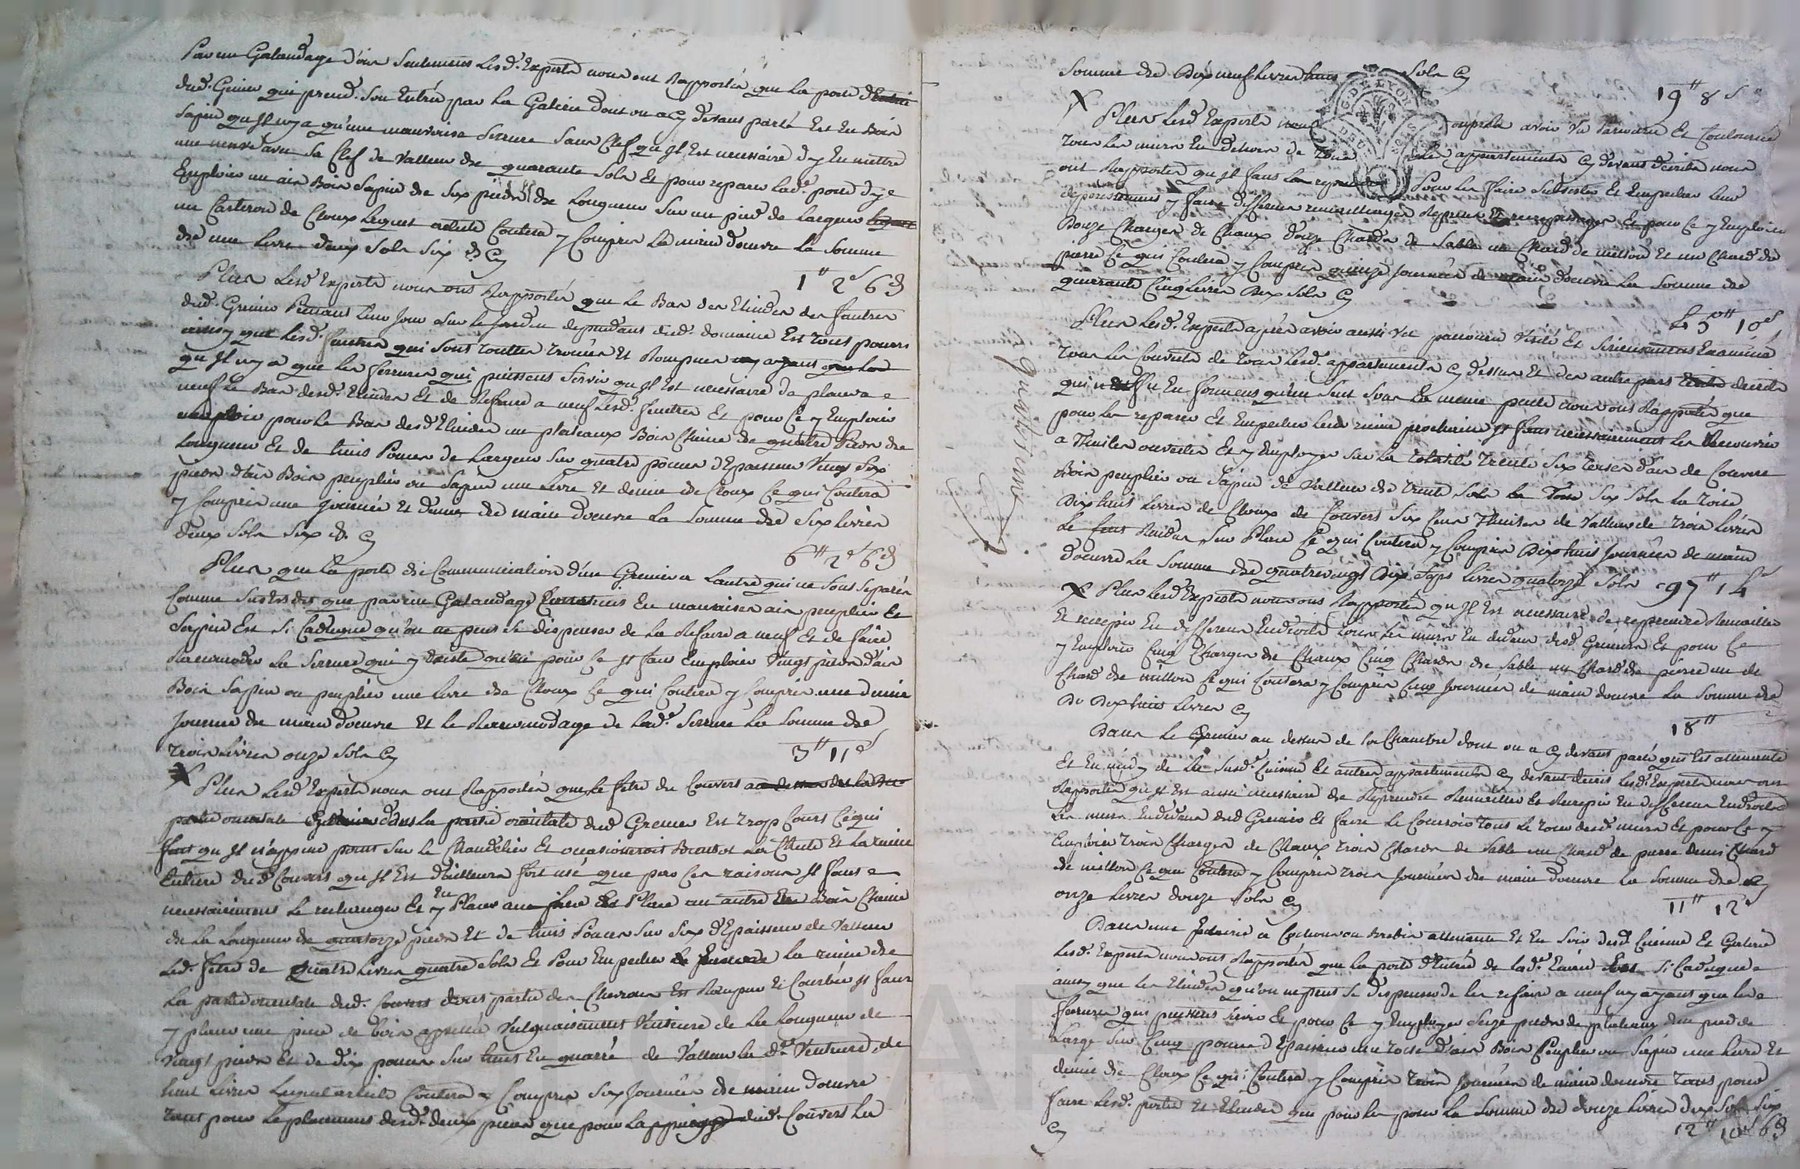 Par un Galandage d'ais seulement Lesd. Experts nous ont Rapporté que La porte d'Entrée
dud. Grenier qui prend son Entrée par La Galerie dont on a cy devant parlé Est En Bois
sapin qu'Il n'y a qu'une mauvaise serrure sans Clef qu'Il Est necessaire d'y En mettre
une neuve avec sa Clef de valleur de quarante sols Et pour reparer lad.e porte d'y
Emploier un ais Bois sapin de six pieds de Longueur sur un pied de Largeur
un Carteron de Cloux Lequel article Coutera y Compris La main d'oeuvre La somme
de une Livre deux sols six d. cy
1# 2s 6d
Plus Lesd. Experts nous ont Rapporté que le Bas des Elindes des fenêtres
dud. Grenier Prenant Leur jour sur le jardin dependant dud. domaine Est tous pourri
ainsy que Lesd. fenêtres qui sont toutes trouées Et Rompues n'y ayant que les
qu'Il n'y a que les ferrures qui puissent servir qu'Il Est necessaire de placer a
neuf le Bas desd. Elindes Et de Refaire a neuf Lesd. fenêtres Et pour Ce y Emploier
pour le Bas desd. Elindes un plateaux Bois Chêne de quatre pieds de
Longueur Et de huit Pouces de Largeur sur quatre pouces d'Epaisseur Vingt six
pieds d'ais Bois peuplier ou sapin une Livre Et demie de Cloux Ce qui Coutera
y Compris une journée Et demie de main d'oeuvre La somme de six Livres
deux sols six d. cy
6# 2s 6d
Plus que La porte de Communication d'un Grenier a Lautre qui ne sont séparés
Comme susdit que par un Galandage Construit En mauvaises ais peuplier Et
sapin Est si Caduque qu'on ne peut se dispenser de La Refaire a neuf Et de faire
Racomoder La serrure qui y Existe pour Ce Il faut Emploier Vingt pieds d'ais
Bois sapin ou peuplier une Livre de Cloux Ce qui Coutera y Compris une demie
journée de main d'oeuvre Et le Racomodage de Lad.e serrure La somme de
trois Livres onze sols cy
3# 11s
X Plus Lesd. Experts nous ont Rapporté que Le fête du Couvert
partie orientale dans la partie orientale dud. Grenier Est trop Court Ce qui
fait qu'Il n'appuie point sur le Chandelier Et occasioneroit Bientot La Chute Et La ruine
Entiere dud. Couvert qu'Il Est d'ailleurs fort usé que par Ces raisons Il faut
necessairement Le rechanger Et En Placer un autre En Bois Chêne
de la Longueur de quatorze pieds Et de huit Pouces sur six d'Epaisseur de Valleur
Led. fête de quatre Livres quatre sols Et Pour Empecher La ruine de
La partie orientale dud. Couvert dont partie des Chevrons Est Rompue Et Courbée Il faut
y placer une piece de bois appellée Vulgairement Venturie de La Longueur de
Vingt pieds Et de dix pouces sur huit En quarré de Valleur lad.te Venturie de
huit Livres Lequel article Coutera y Compris six journées de main d'oeuvre
tant pour Le placement desd. deux pieces que pour La dud. Couvert La
somme de Dix neuf Livres huit sols cy
19# 8s
G. DE LYON
X Plus Lesd. Experts nous avoir Vu parcouru Et
tous les murs En dehors de tous appartements cy devant decrits nous
ont Rapporté qu'Il faut Les Pour les faire subsister Et Empecher leur
y faire differens Et pour Ce y Emploier
Douze Charges de Chaux Douze Chards de Sable un Chard de mitton Et un Chard de
pierre Ce qui Coutera y Compris quinze journées de main d'oeuvre La somme de
quarante Cinq Livres Dix sols cy
45# 10s
Plus Lesd. Experts après avoir aussi Vu parcouru Visité Et serieusement Examiné
tous les Couverts de tous Lesd. appartements cy dessus Et des autres parts decrits
qui n'En forment qu'un seul sous la même pente nous ont Rapporté que
pour les reparer Et Empecher Leur ruine prochaine Il faut necessairement Les Recouvrir
a thuiles ouvertes Et y Employer sur La totalité trente six toises d'ais de Couvert
Bois peuplier ou sapin de Valleur de trente sols La toise
Dix huit Livres de Cloux de Couvert six Cens Thuiles de Valleur de trois Livres
Le Cent Rendus sur Place Ce qui Coutera y Compris Dix huit journées de main
d'oeuvre La somme de quatre vingt Dix sept Livres quatorze sols 97# 14s
X Plus Lesd. Experts nous ont Rapporté qu'Il Est necessaire de reprendre Remailler
Et recrepir En differens Endroits tous Les murs En dedans dud. Grenier Et pour Ce
y Emploier Cinq Charges de Chaux Cinq Chards de sable un Chard de pierre un de
Chard de mitton Ce qui Coutera y Compris Cinq journées de main d'oeuvre La somme de
De Dix huit Livres cy
18#
Dans Le Grenier au dessus de la Chambre dont on a cy devant parlé qui Est attenante
Et En midy de La susd. Cuisine Et autres appartements cy devant decrits Lesd. Experts nous ont
Rapporté qu'Il Est aussi necessaire de Reprendre Remailler Et Recrepir En differens Endroits
Les murs En dedans dud. Grenier Et faire Le Couroir tous Le tour desd. murs Et pour Ce y
Emploier trois Charges de Chaux trois Chards de sable un Chard de pierre demi Chard
de mitton Ce qui Coutera y Compris trois journées de main d'oeuvre La somme de
onze Livres douze sols cy
11# 12s
Dans une Ecurie a Cochons ou Brebis attenante Et En soir desd. Cuisine Et Galerie
Lesd. Experts nous ont Rapporté que La porte d'Entrée de lad.e Ecurie Est si Caduque
ainsy que les Elindes qu'on ne peut se dispenser de les refaire a neuf n'y ayant que les
ferrures qui puissent servir Et pour Ce y Employer seize pieds de plateaux d'un pied de
Large sur Cinq pouces d'Epaisseur une toise d'ais Bois Peuplier ou Sapin une Livre Et
demie de Cloux Ce qui Coutera y Compris trois journées de main d'oeuvre tant pour
faire Lesd. portes Et Elindes que pour les poser La somme de douze Livres dix sols six
cy
12# 10s 6d